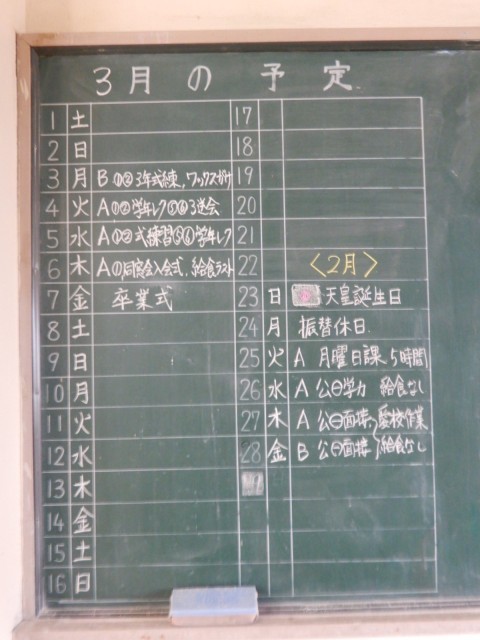 3月の予定
1 土
2 日
3 月 B ①② 3年式練,ワックスがけ
4 火 A ①② 学年レク ⑤⑥ 3送会
5 水 A ①② 式練習 ⑤⑥ 学年レク
6 木 A ① 同窓会入会式,給食ラスト
7 金 卒業式
8 土
9 日
10 月
11 火
12 水
13 木
14 金
15 土
16 日
17
18
19
20
21
22 〈2月〉
23 日 天皇誕生日
24 月 振替休日
25 火 A 月曜日課 5時間
26 水 A 公㊀学力 給食なし
27 木 A 公㊀面接 愛校作業
28 金 B 公㊀面接 給食なし